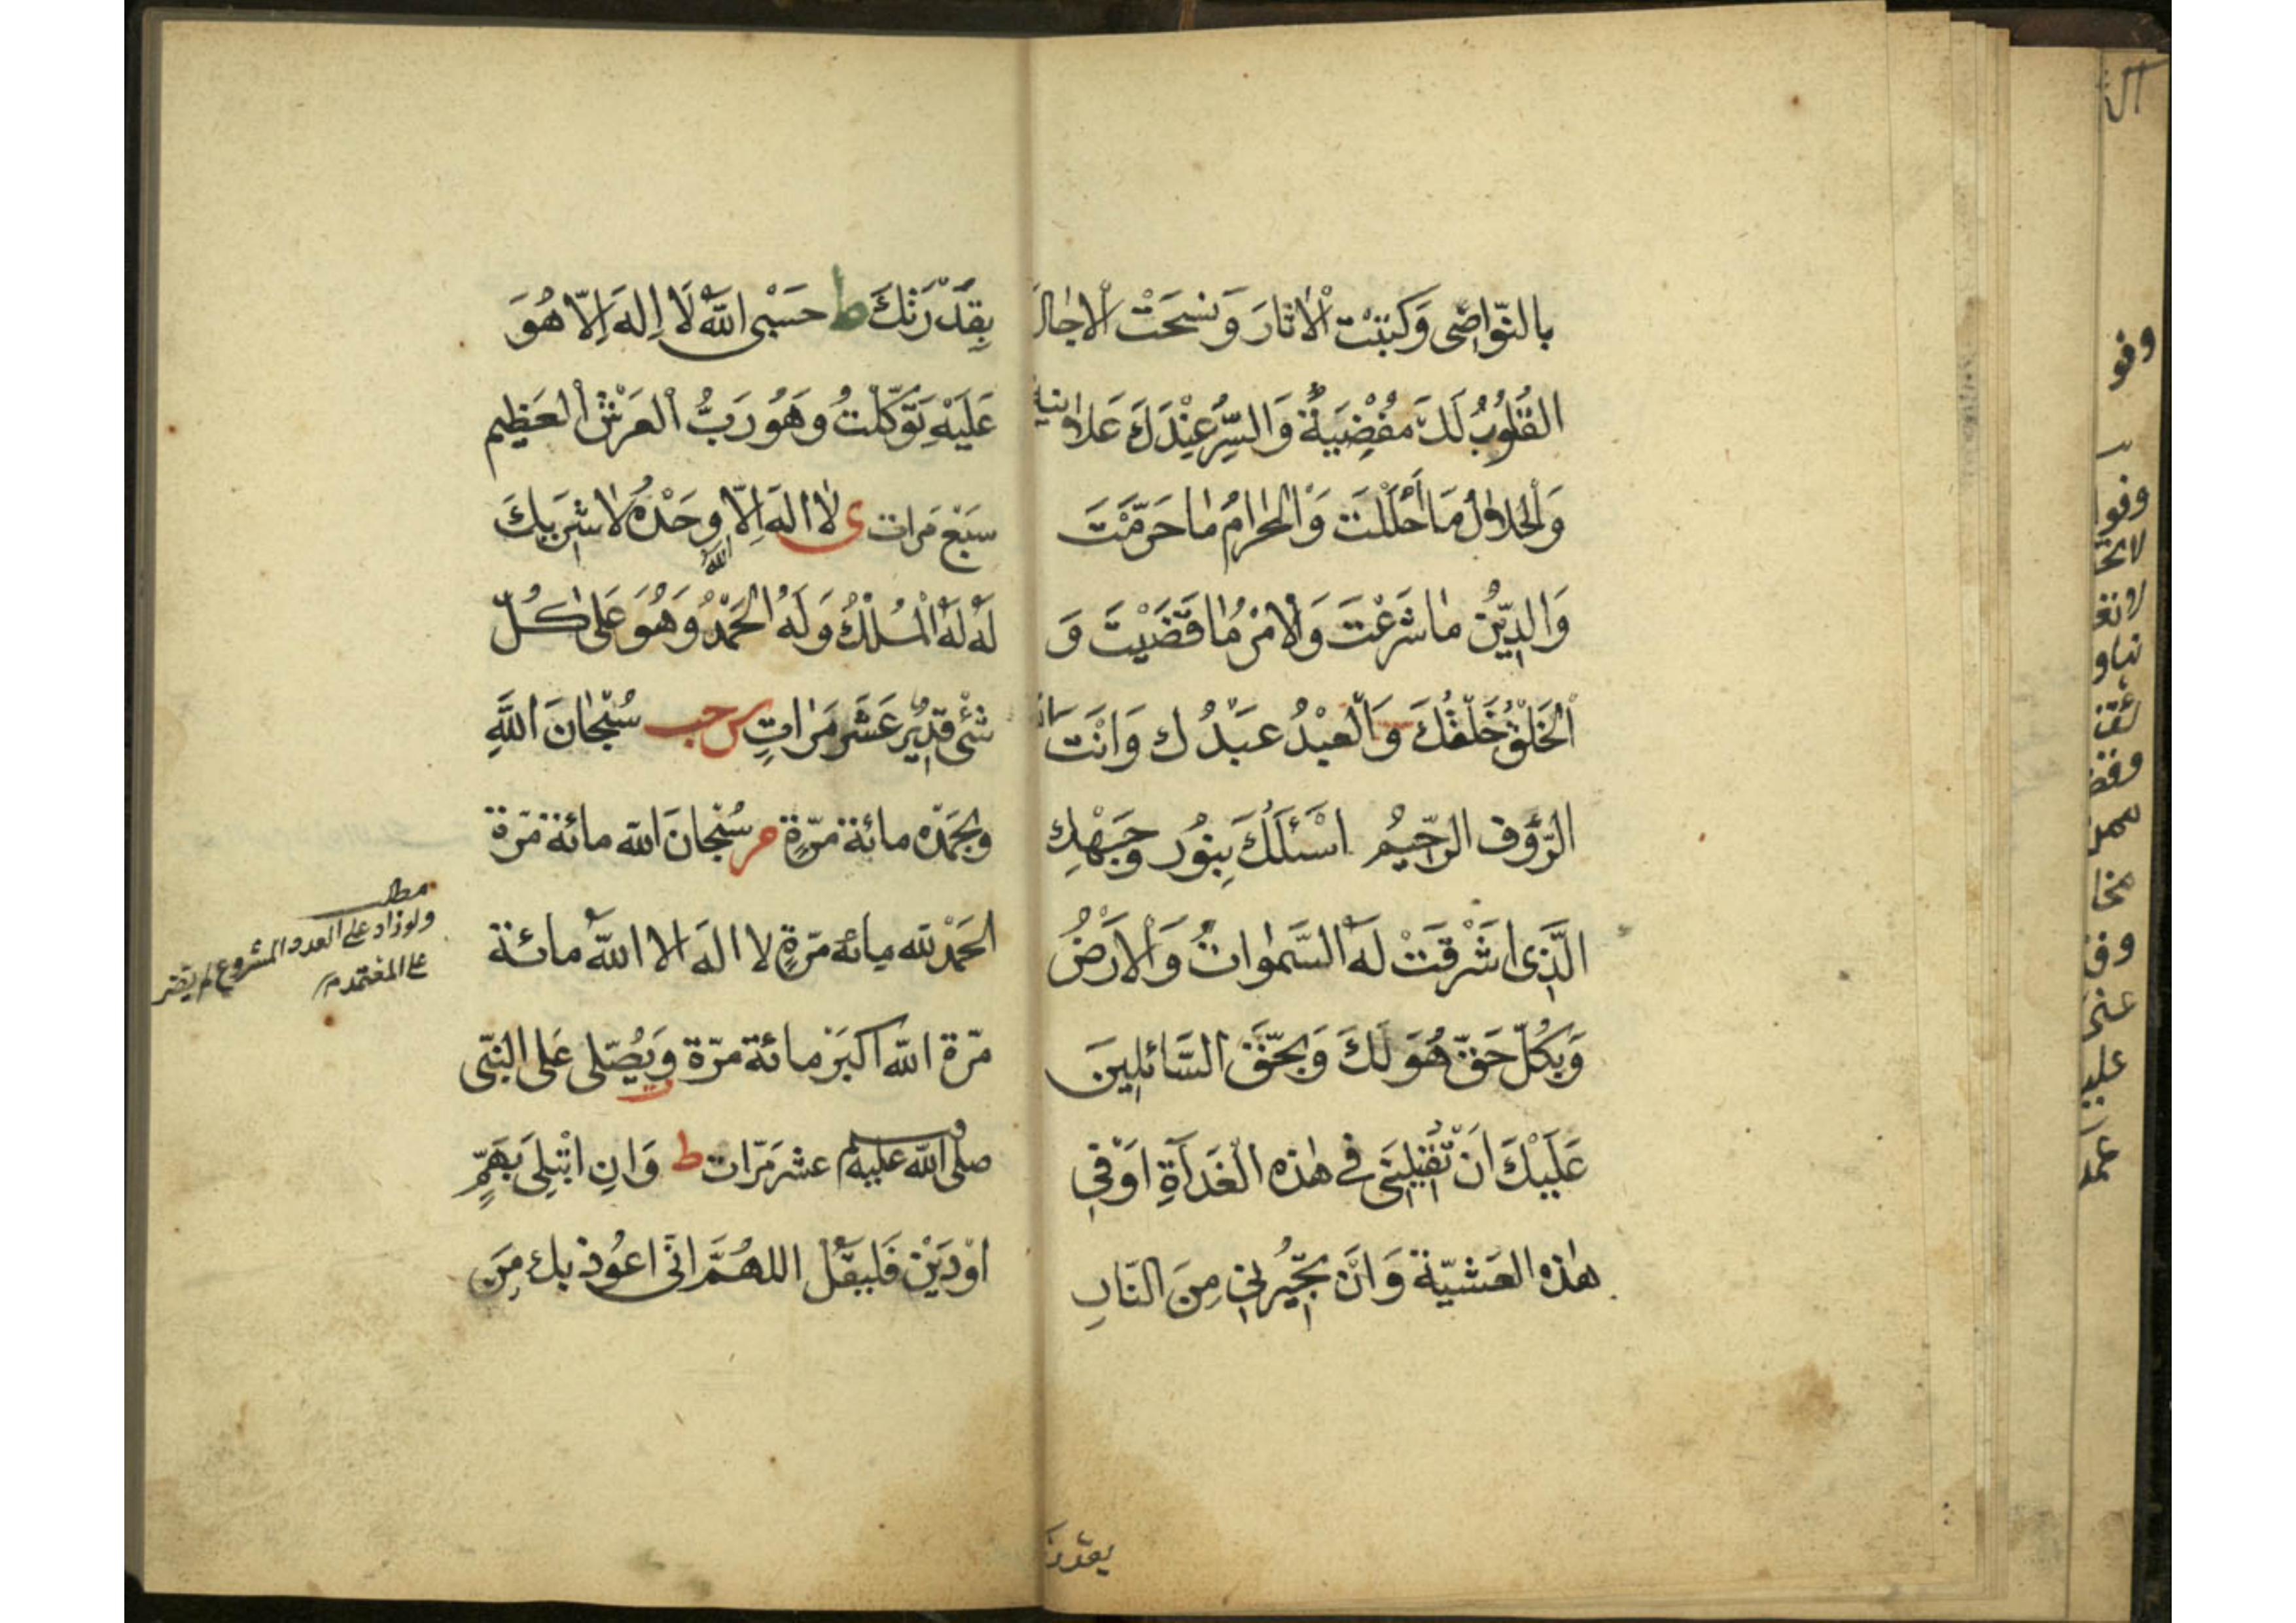 بالنّواصى وَكتبْت الْاثارَ وَنسَخْتَ الْاجال
القُلُوُبُ لَكَ مُفْضِيَةٌ وَالسِّرُّ عِنْدَكَ عَلانية
وَالْحَلالُ مَا اَحْلَلْتَ وَالْحَرامُ مٰا حَرَّمْتَ
وَالدِّيْنُ مٰا شَرَعْتَ وَالْامْرُ مٰا قَضَيْتَ وَ
اْلخَلْقُ خَلْقُكَ وَالْعبْدُ عبَدُك وَانَتَ
الرَّؤُف الرَّحِيُم اسْئَلُكَ بِنوُر وَجَهْكِ
الَّذِى اشَرْقَتْ لَهُ السَّمٰواتُ وَالْارَضُ
وَبكُلّ حَقّ هُوَ لَكَ وَبحَقّ السَّائلِينَ
عَلَيْكَ انَ تُقيْلِنَى فى هٰذه الْغَدَاةِ اوَفْىِ
هٰذه العَشيّة وَانَ تجُيْرنىِ مِنَ النّارِ
بقدرتك
بِقدْرَتكَ ط حَسَبْى اللهُ لَا اِلهَ اِلّا هُوَ
عَلَيْهِ تَوَكّلْتُ وهَوُ رَبُّ الْعَرْشْ الْعَظِيم
سَبَعْ مَرات ى لا اله اِلّا وحَدْهُ لا شرَيكَ
اللّه
لَهُ لَهُ الْمُلْكُ وَلَهُ الْحَمْدُ وَهُوَ عَلىٰ كُلّ
شْئَ قدِيْرٌ عَشَر مَرٰاتٍ س حب سُبْحٰانَ اللّهِ
وبحَمْدِه مائة مرّةٍ مر سُبْحانَ اللّه مائة مرَة
الحَمْدلله مائه مرّةٍ لا الهَ الا اللّهُ مائة
مرّة اللّه اكبَرَ مائة مرّة وَيُصَلى عَلى النبّى
صلى اللّه عليه وسلم عشر مَرّات ط وَانِ ابْتلِىَ بَهمٍّ
اوْدَيْن فَليَقُلْ اللهُمَّ انىّ اعوُذ بك مِنَ
مطلب
ولو زاد على العدد المشروع لم يضر
على المعتمد م